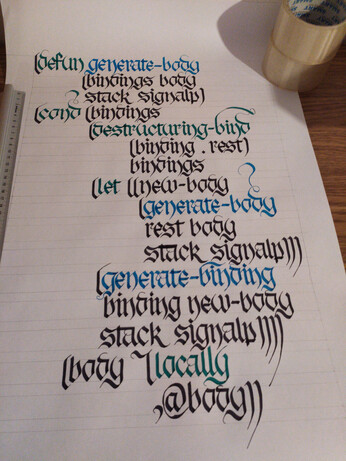 (defun generate-body
(bindings body
stack signalp)
(cond (bindings
(destructuring-bind
(binding . rest)
bindings
(let ((new-body
(generate-body
rest body
stack signalp)))
(generate-binding
binding new-body
stack signalp))))
(body `(locally
,@body))